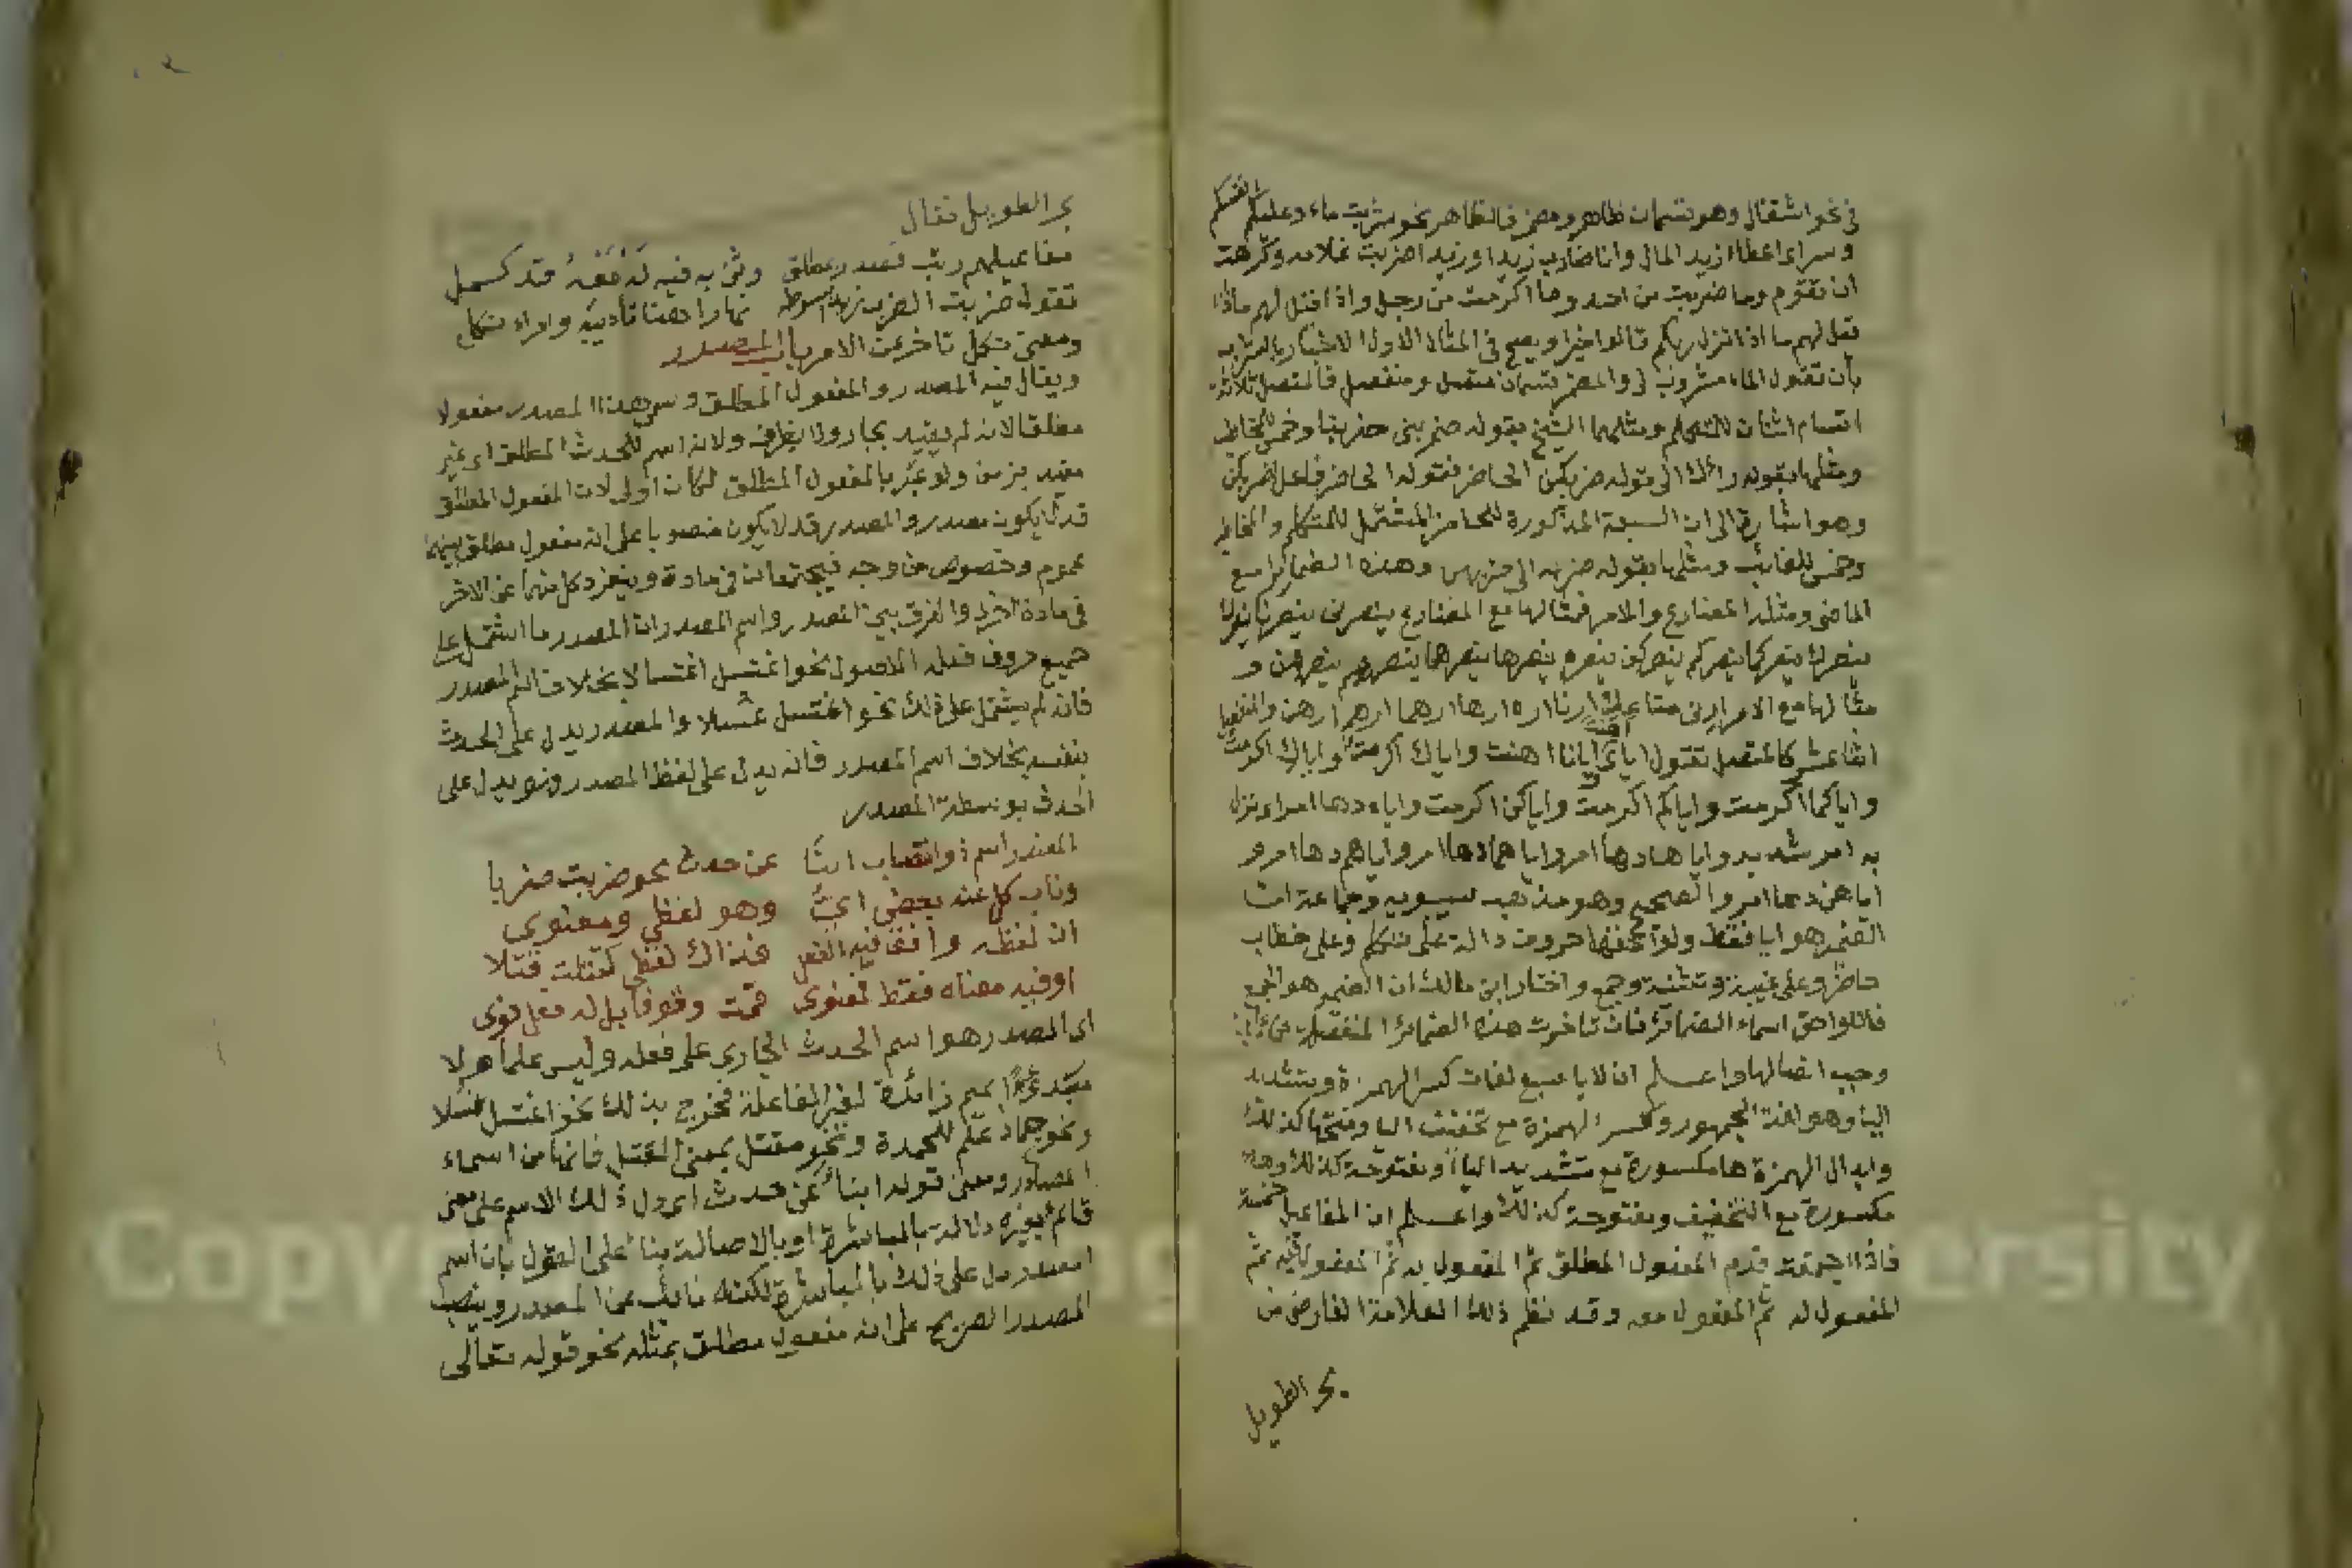 في نحو اشتغال وهو قسمان ظاهر ومضمر فالظاهر نحو شربت ماء وعليكم انفسكم
وسراى اعطا زيد المال وانا ضارب زيدا او زيدا ضربت غلامه وكرهت
ان تقوم وما ضربت من احد وما اكرمت من رجل واذا قيل لهم ماذا
قيل لهم ماذا انزل ربكم قالوا خيرا ويصح في المثال الاول الاخبار بالشرابه
بأن تقول الماء مشروب لى والمضمر قسمان متصل ومنفصل فالمتصل ثلاثة
اقسام اثنان للمتكلم ومثلهما الشيخ بقوله ضربنى ضربنا وخمس للمخاطب
ومثلها بقوله الى قوله ضربكن الحاضر فقوله الحاضر فاعل ضربكن
وهو اشارة الى ان السبعة المذكورة للحاضر المشتمل للمتكلم والمخاطب
وخمس للغائب ومثلها بقوله ضربه الى ضربهن وهذه الضمائر مع
الماضى ومثله المضارع والامر فمثالها مع المضارع ينصرنى ينصرنا ينصرك
ينصرك ينصركما ينصركم ينصركن ينصره ينصرها ينصرهما ينصرهم ينصرهن و
مثالها مع الامر ارنا اره ارها ارهما ارهم ارهن والمنفصل
اثنا عشر كالمتصل تقول اياى ايانا اهنت واياك اكرمت واياك اكرمت
واياكما اكرمت واياكم اكرمت واياكن اكرمت واياه دها امر نزل
به امر شديد واياها دها امر واياهما دها امر واياهم دها امر و
اياهن دها امر والصحيح وهو مذهب سيبويه وجماعة ان
الضمير هو ايا فقط ولواحقها حروف دالة على متكلم وعلى خطاب
حاضر وعلى غيبة وتثنية وجمع واختار ابن مالك ان الضمير هو الجميع
فاللواحق اسماء الضمائر فان تاخرت هذه الضمائر المنفصلة
وجب اتصالها واعلم ان لايا سبع لغات كسر الهمزة وتشديد
اليا وهو لغة الجمهور وكسر الهمزة مع تخفيف اليا وفتحها كذلك
وابدال الهمزة ها مكسورة مع تشديد اليا ومفتوحة كذلك وها
مكسورة مع التخفيف ومفتوحة كذلك واعلم ان المفاعيل خمسة
فاذا اجتمعت قدم المفعول المطلق ثم المفعول به ثم المفعول فيه ثم
المفعول له ثم المفعول معه وقد نظم ذلك العلامة الفارضى من
بحر الطويل
بحر الطويل فقال
مفاعيلهم رتب فصدر بمطلق وثن به فيه له معه قد كمل
تقول ضربت الضرب زيدا بسوطه نهارا هنا تأديبه وامراء نكل
ومعنى نكل تاخر عن الامر باب المصدر
ويقال فيه المصدر والمفعول المطلق وسمى هذا المصدر مفعولا
مطلقا لانه لم يقيد بجار ولا بظرف ولانه اسم للحدث المطلق اى غير
مقيد بزمن ولو عبر بالمفعول المطلق لكان اولى لان المفعول المطلق
قد لا يكون مصدر والمصدر قد لا يكون منصوبا على انه مفعول مطلق فبينهما
عموم وخصوص من وجه فيجتمعان في مادة وينفرد كل منهما عن الاخر
في مادة اخرى والفرق بين المصدر واسم المصدر ان المصدر ما اشتمل على
جميع حروف فعله الاصول نحو اغتسل اغتسالا بخلاف اسم المصدر
فانه لم يشتمل على ذلك نحو اغتسل غسلا والمصدر يدل على الحدث
بنفسه بخلاف اسم المصدر فانه يدل على لفظ المصدر وهو يدل على
الحدث بوسطة المصدر
المصدر اسم ذو انتصاب انبأ عن حدث نحو ضربت ضربا
وناب كل عنه بعض اى وهو لفظي ومعنوى
ان لفظه وافق فيه الفعل فذاك لفظي كقتلت قتلا
او فيه معناه فقط فمعنوى قمت وقوفا بل له فعل قوى
اى المصدر هو اسم الحدث الجارى على فعله وليس علما ولا
مبدوءا بميم زائدة لغير المفاعلة فخرج بذلك نحو اغتسل غسلا
ونحو حماد علم للحمدة ونحو مقتل بمعنى القتل فانها من اسماء
المصادر ومعنى قوله انبأ عن حدث اى دل ذلك الاسم على معنى
قائم بغيره دلالة بالمباشرة او بالاصالة بناء على القول بان اسم
المصدر يدل على ذلك بالمباشرة لكنه نائب عن المصدر وينصب
المصدر الصريح على انه مفعول مطلق بمثله نحو قوله تعالى